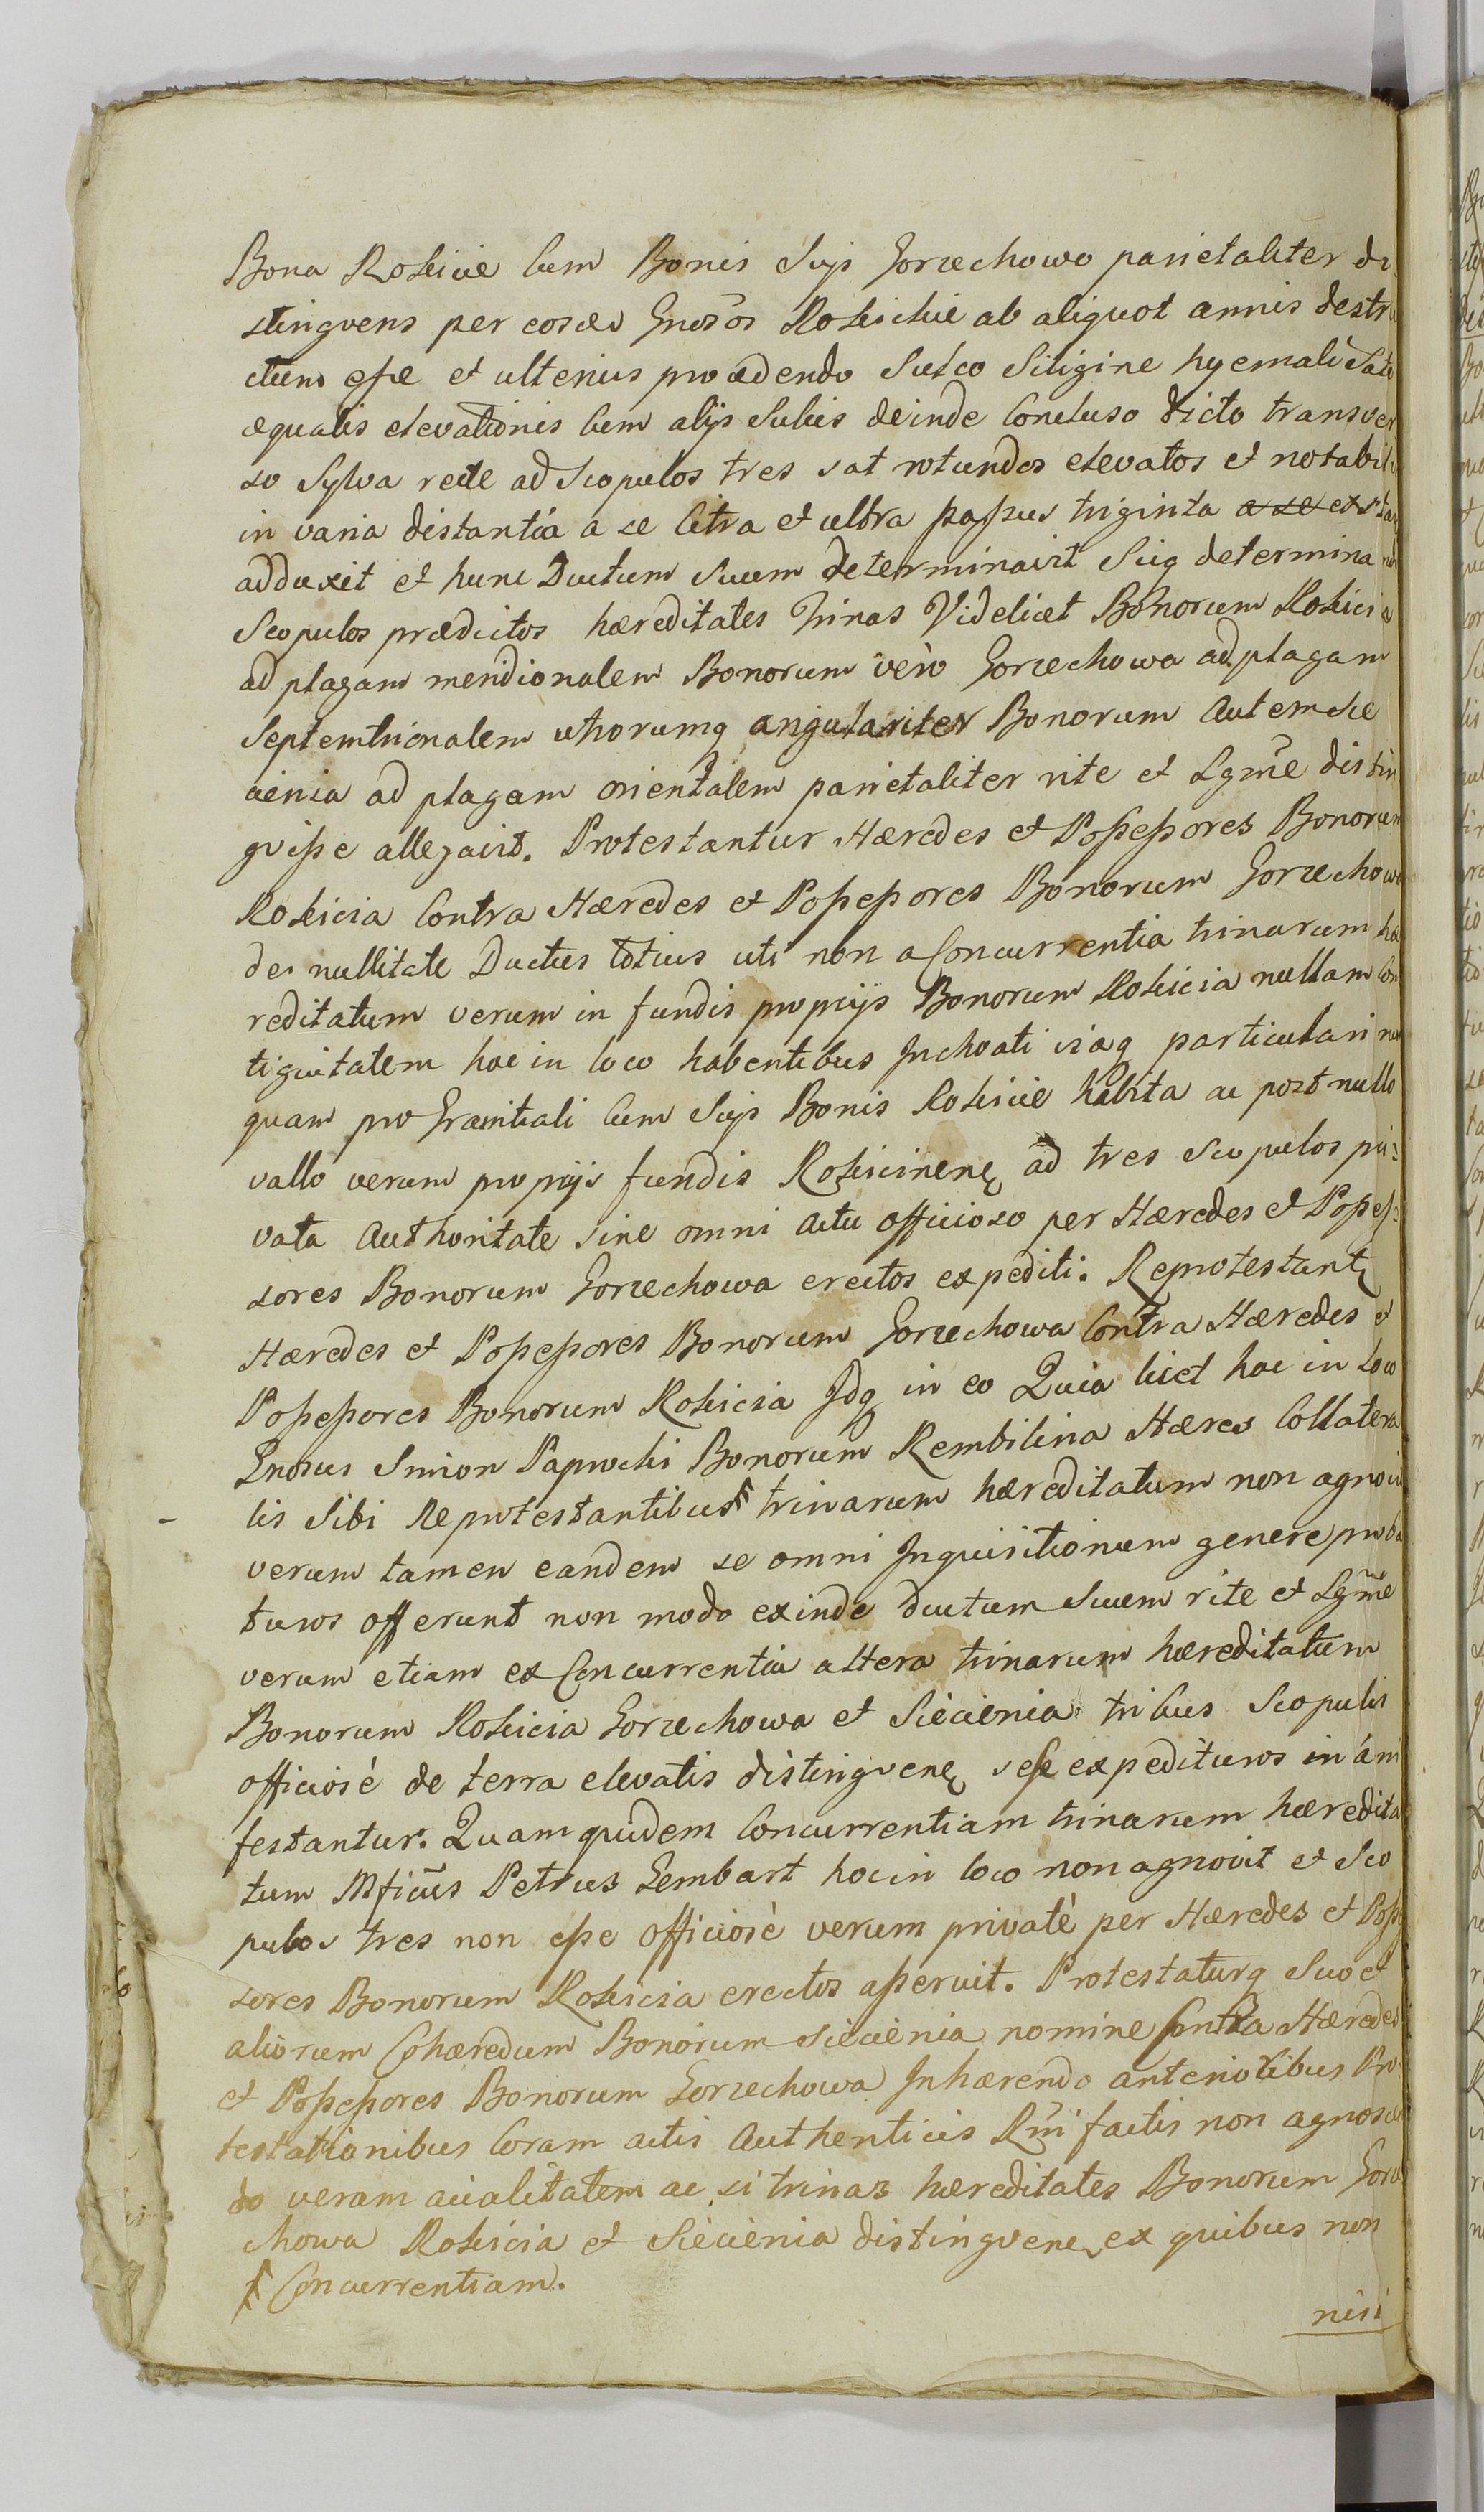 Bona Rokicie Cum Bonis Suis Gorzechowo parietaliter di
stingvens per eosdem Gnosos Rokickie ab aliquot annis destru
ctum esse et ulterius procedendo Sulco Siligine hyemali Sati
æqualis elevationis Cum alijs Sulcis deinde Concluso dicto transver
so Sylva recte ad Scopulos tres sat rotundos elevatos et notabili
in varia distantia a se Citra et ultra passus triginta a se extan
adduxit et hunc Ductum Suum determinavit Sicq determinan
Scopulos prædictos hæreditates Trinas Videlicet Bonorum Rokicia
ad plagam meridionalem Bonorum vero Gorzechowa ad plagam
Septemtrionalem utrorumq angulariter Bonorum Autem Sie
cienia ad plagam orientalem parietaliter rite et Lgme distin
gvisse allegavit. Protestantur Hæredes et Possessores Bonorum
Rokicia Contra Hæredes et Possessores Bonorum Gorzechowa
de nullitate Ductus totius uti non a Concurrentia trinarum hæ
reditatum verum in fundis proprijs Bonorum Rokicia nullam Con
tiguitatem hoc in loco habentibus Inchoati viaq particulari nun
quam pro Granitiali Cum Suis Bonis Rokicie habita ac post nullo
vallo verum proprijs fundis Rokicinen ad tres Scopulos pri:
vata Authoritate sine omni actu officioso per Hæredes et Posses:
sores Bonorum Gorzechowa erectos expediti. Reprotestant
Hæredes et Possessores Bonorum Gorzechowa Contra Hæredes et
Possessores Bonorum Rokicia Idq in eo Quia licet hoc in Loco
Gnosus Simon Paprocki Bonorum Rembilina Hæres Collatera
lis Sibi Reprotestantibus trinarum hæreditatum non agnovit
verum tamen eandem se omni Inquisitionum genere proba
turos offerunt non modo exinde ductum Suum rite et Lgme
verum etiam ex Concurrentia altera trinarum hæreditatum
Bonorum Rokicia Gorzechowa et Siecienia tribus Scopulis
officiosè de terra elevatis distingven sese expedituros in ani
festantur. Quam quidem Concurrentiam trinarum hæredita
tum Mficus Petrus Gembart hoc in loco non agnovit et Sco
pulos tres non esse officiosè verum privatè per Hæredes et Posse
sores Bonorum Rokicia erectos asseruit. Protestaturq Suo et
aliorum Cohæredum Bonorum Siecienia nomine Contra Hæredes
et Possessores Bonorum Gorzechowa Inhærendo anterioribus Pro:
testationibus Coram actis Authenticis Rmi factis non agnoscen
do veram acialitatem ac si trinas hæreditates Bonorum Gorze
chowa Rokicia et Siecienia distingven ex quibus non
Concurrentiam.
nisi